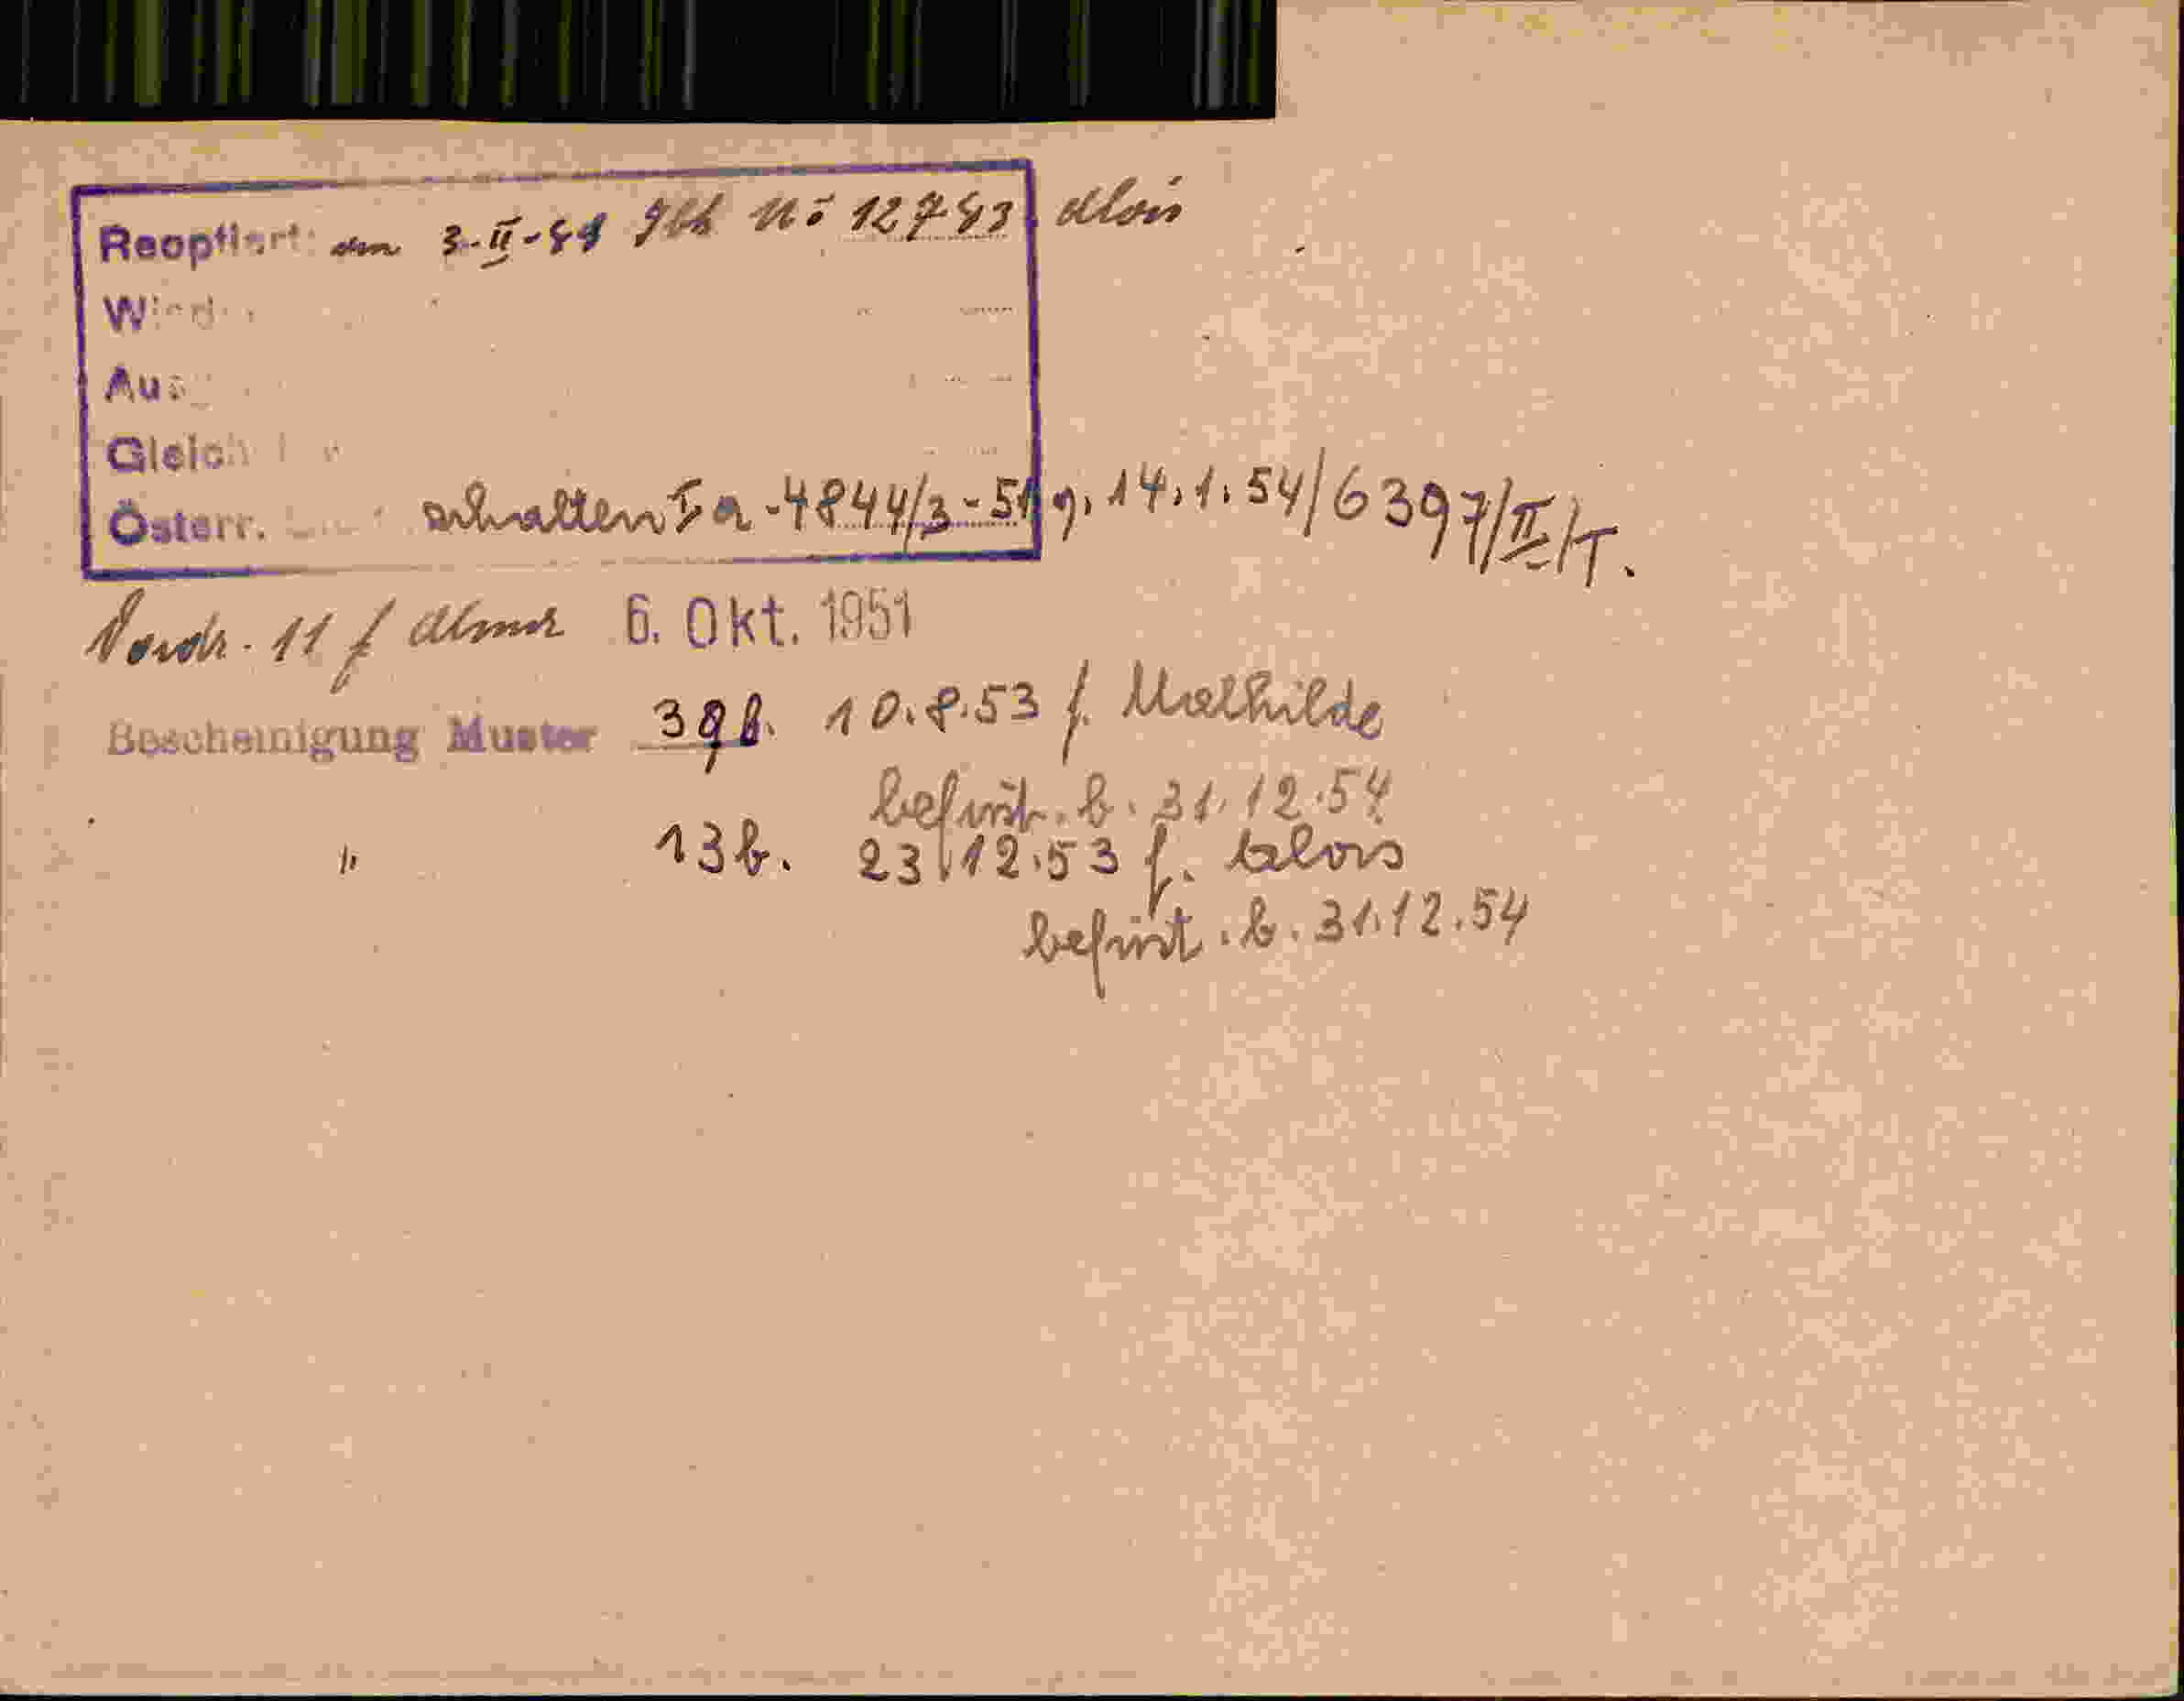 Reoptiert: am 3-II-49 Glb No 12783 Alois
Gleich
Österr. erhalten Ia-4844/3-51 v. 14.1.54/6397/II/T.
Vordr. 11 f 6. Okt. 1951
Bescheinigung Muster 39b. 10.8.53 f. Mathilde
befrist. b. 31.12.54
" 13b. 23.12.53 f. Alois
befrist. b. 31.12.54